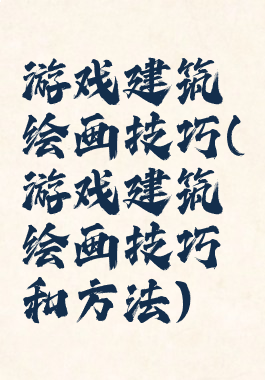 游戏建筑
绘画技巧(
游戏建筑
绘画技巧
和方法)